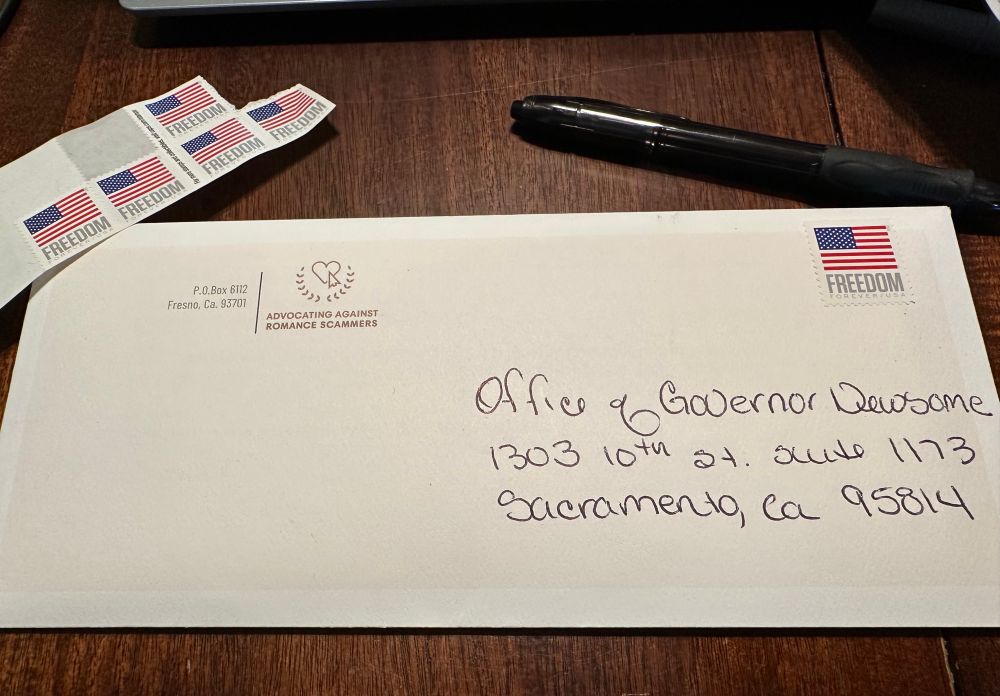 FREEDOM
FREEDOM
FREEDOM
FREEDOM
FREEDOM
P.O.Box 6112
Fresno, Ca. 93701
ADVOCATING AGAINST
ROMANCE SCAMMERS
FREEDOM
FOREVER/USA
Office of Governor Newsome
1303 10th st. suite 1173
Sacramento, Ca 95814